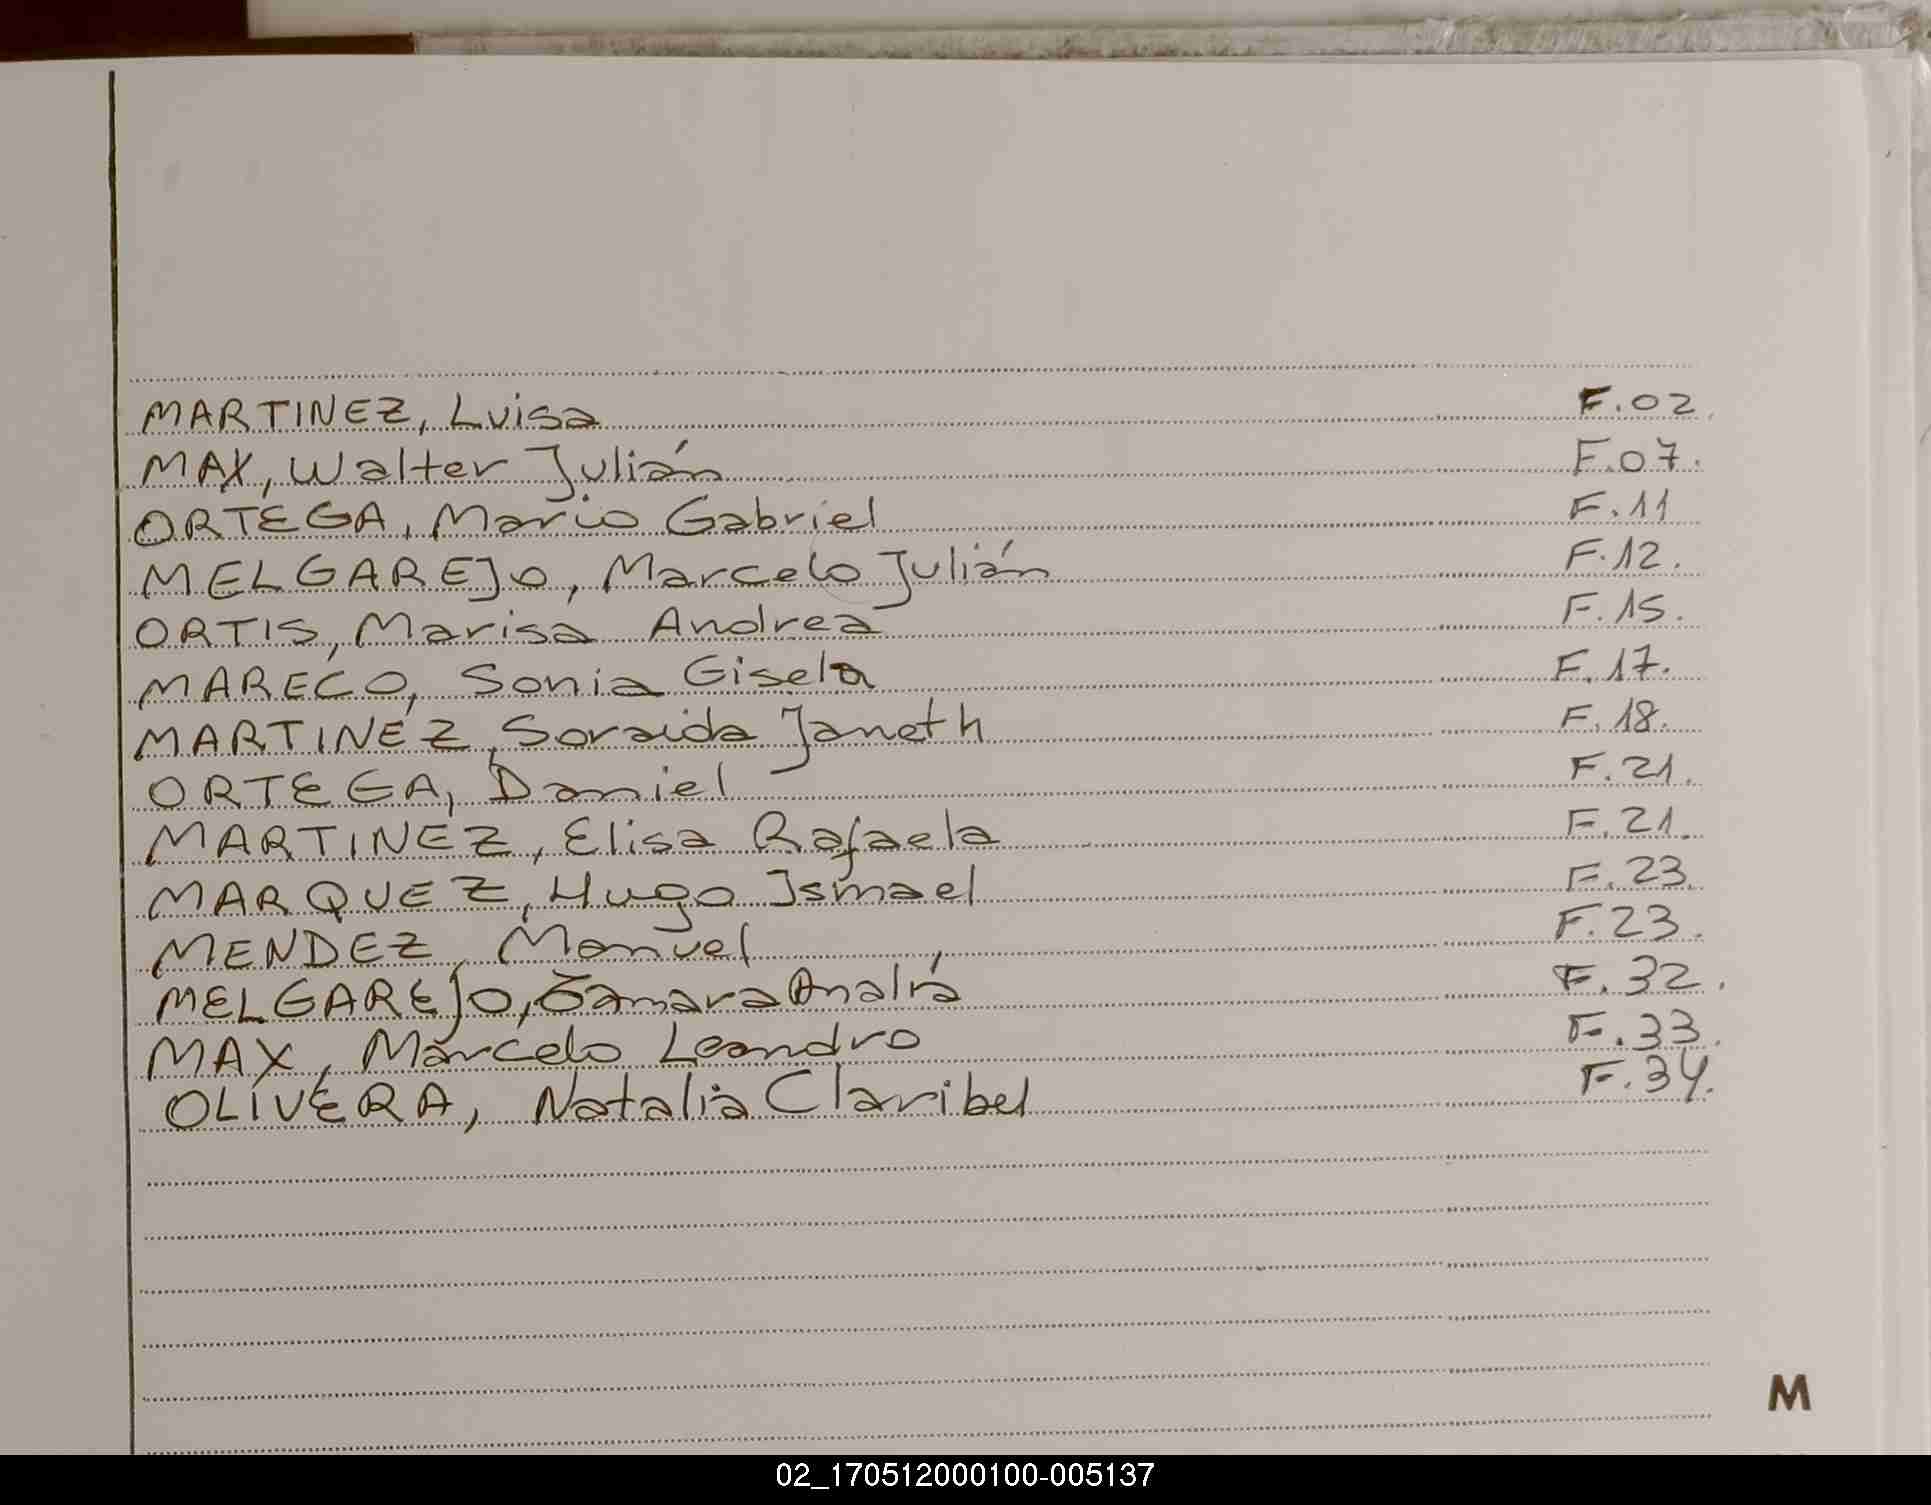 MARTINEZ, Luisa F.02
MAX, Walter Julián F.07.
ORTEGA, Mario Gabriel F.11
MELGAREJO, Marcelo Julián F.12.
ORTIS, Marisa Andrea F.15.
MARECO, Sonia Gisela F.17.
MARTINEZ, Soraida Janeth F.18.
ORTEGA, Daniel F.21.
MARTINEZ, Elisa Rafaela F.21.
MARQUEZ, Hugo Ismael F.23.
MENDEZ, Manuel F.23.
MELGAREJO, Samara Analía F.32.
MAX, Marcelo Leandro F.33.
OLIVERA, Natalia Claribel F.34.
M
02_170512000100-005137